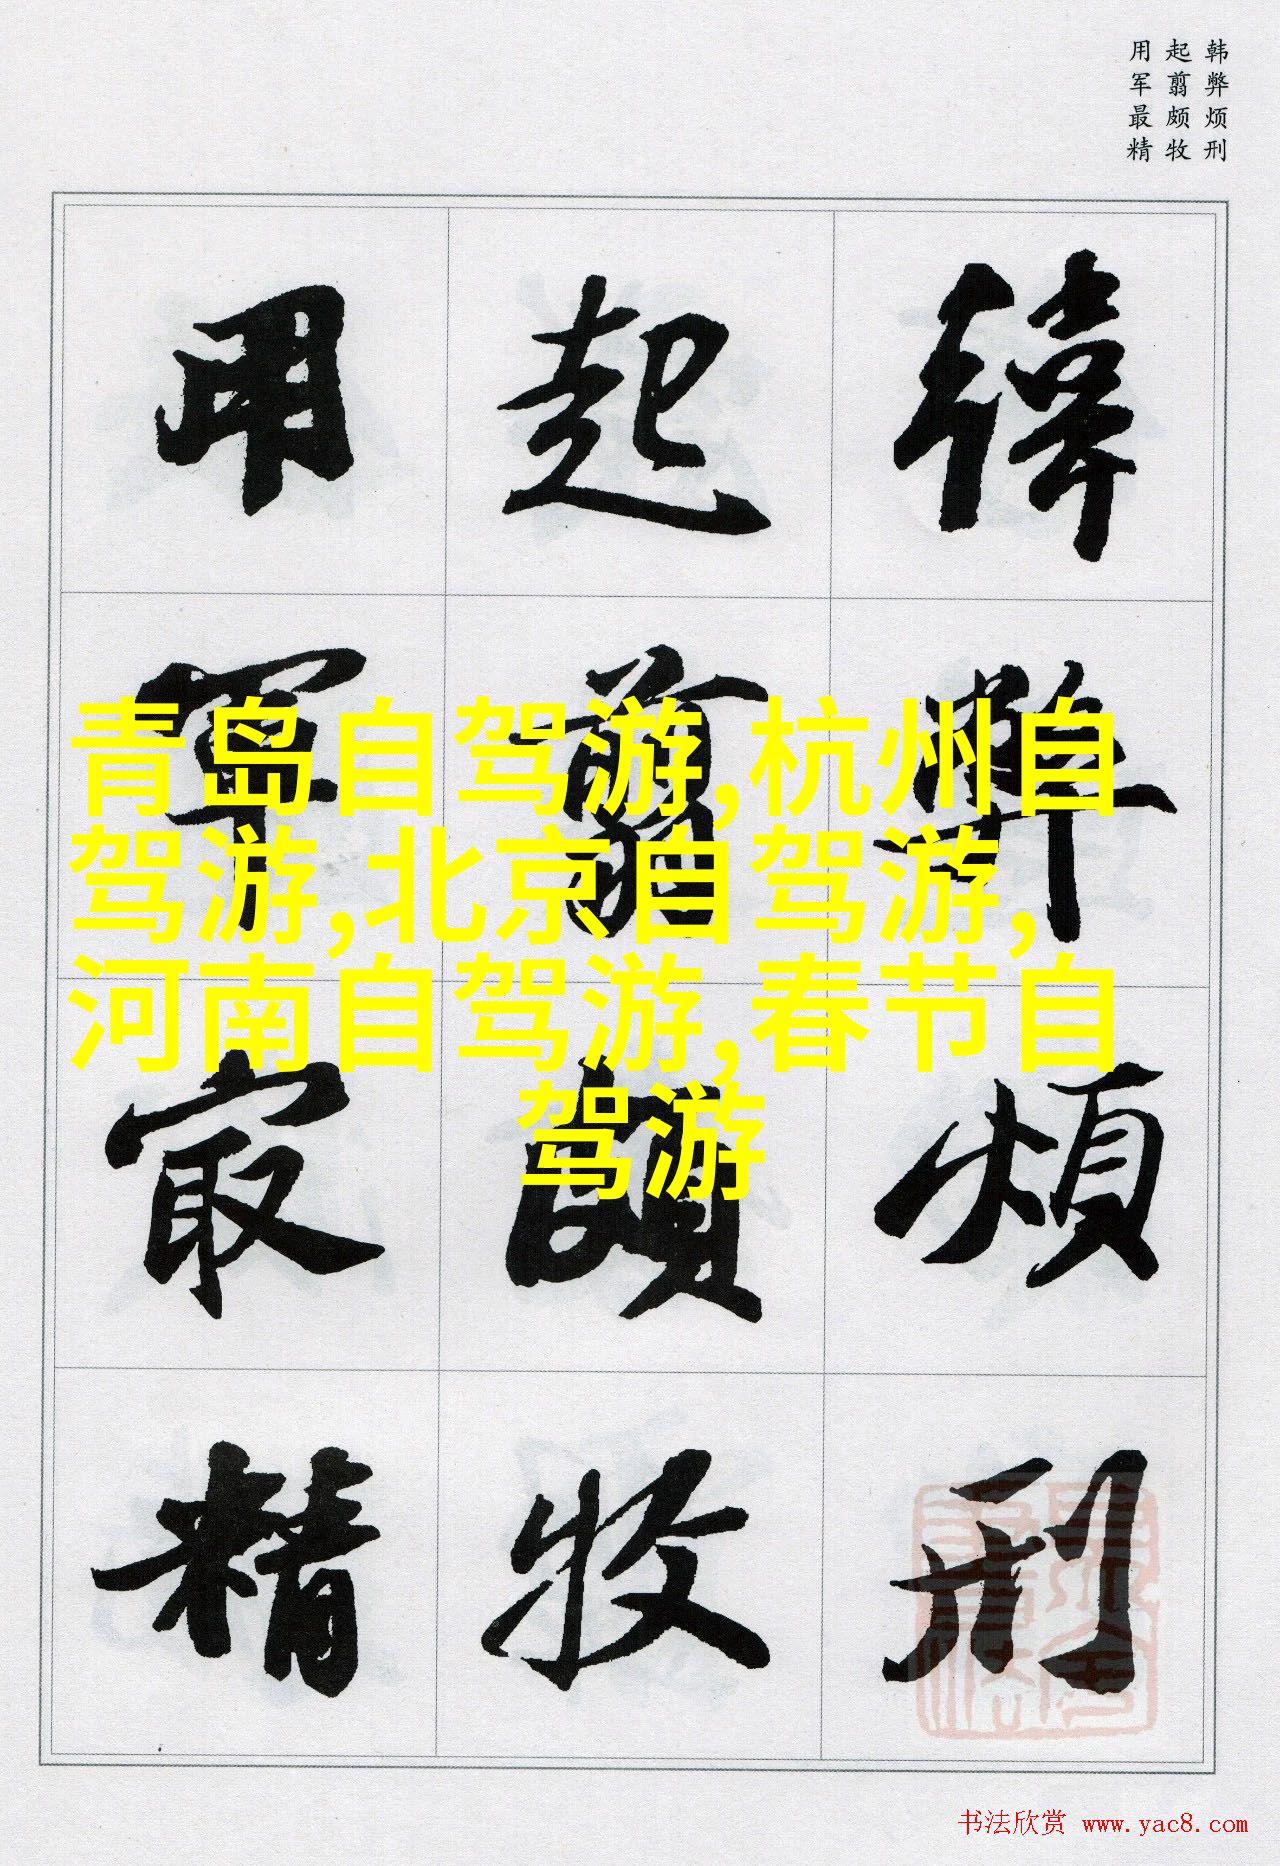 韩弊烦刑
起翦颇牧
用军最精
韩弊烦刑
起翦颇牧
用军最精
青岛自驾游,杭州自
驾游,北京自驾游,
河南自驾游,春节自
驾游
书法欣赏 www.yac8.com